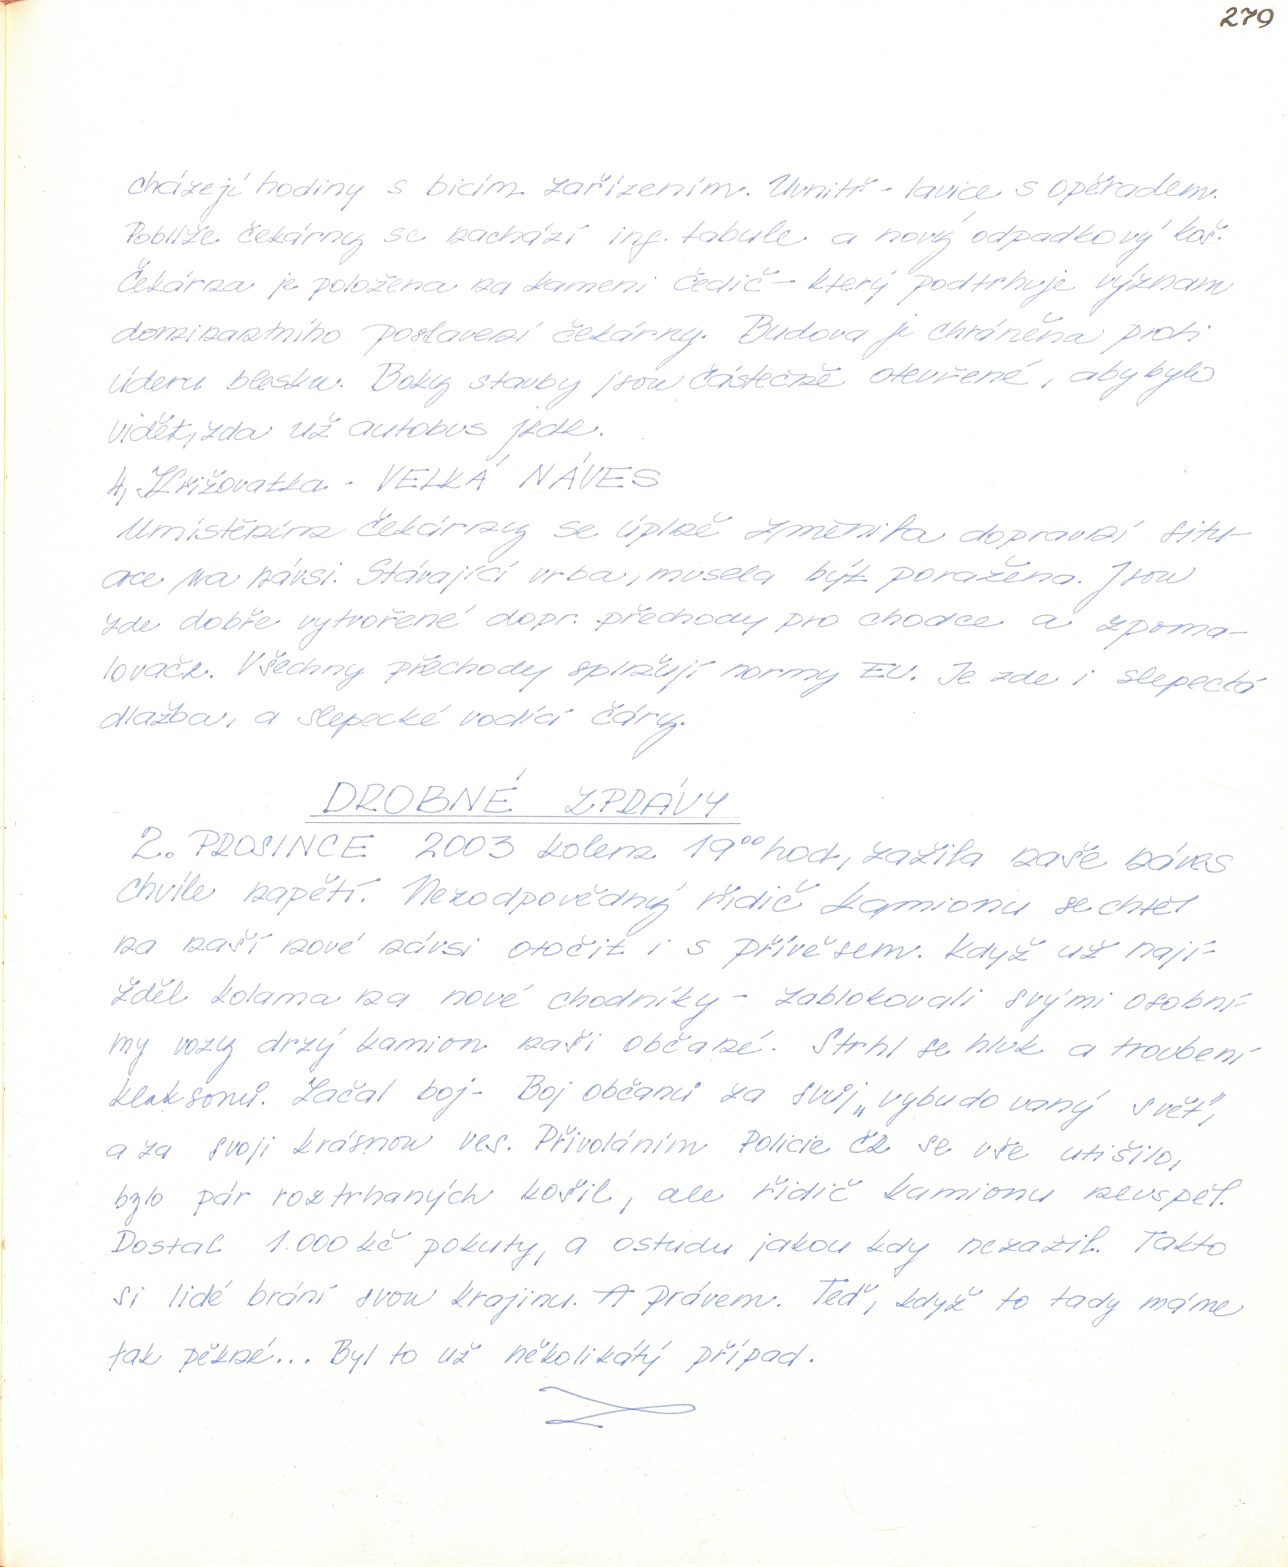 279
cházejí hodiny s bicím zařízením. Uvnitř - lavice s opěradem.
Poblíže čekárny se nachází inf. tabule a nový odpadkový koš.
Čekárna je položena na kameni čedič - který podtrhuje význam
dominantního postavení čekárny. Budova je chráněna proti
úderu blesku. Boky stavby jsou částečně otevřené, aby bylo
vidět, zda už autobus jede.
4, Křižovatka - VELKÁ NÁVES
Umístěním čekárny se úplně změnila dopravní situ-
ace na návsi. Stávající vrba, musela být poražena. Jsou
zde dobře vytvořené dopr. přechody pro chodce a zpoma-
lovače. Všechny přechody splňují normy EU. Je zde i slepecká
dlažba, a slepecké vodící čáry.
DROBNÉ ZPRÁVY
2. PROSINCE 2003 kolem 19⁰⁰ hod, zažila naše náves
chvíle napětí. Nezodpovědný řidič kamionu se chtěl
na naší nové návsi otočit i s přívěsem. Když už nají-
žděl kolama na nové chodníky - zablokovali svými osobní-
my vozy drzý kamion naši občané. Strhl se hluk a troubení
klaksonů. Začal boj - Boj občanů za svůj „vybudovaný svět",
a za svoji krásnou ves. Přivoláním Policie ČR se vše utišilo,
bylo pár roztrhaných košil, ale řidič kamionu neuspěl.
Dostal 1.000 kč pokuty, a ostudu jakou kdy nezažil. Takto
si lidé brání svou krajinu. A právem. Teď, když to tady máme
tak pěkné... Byl to už několikátý případ.